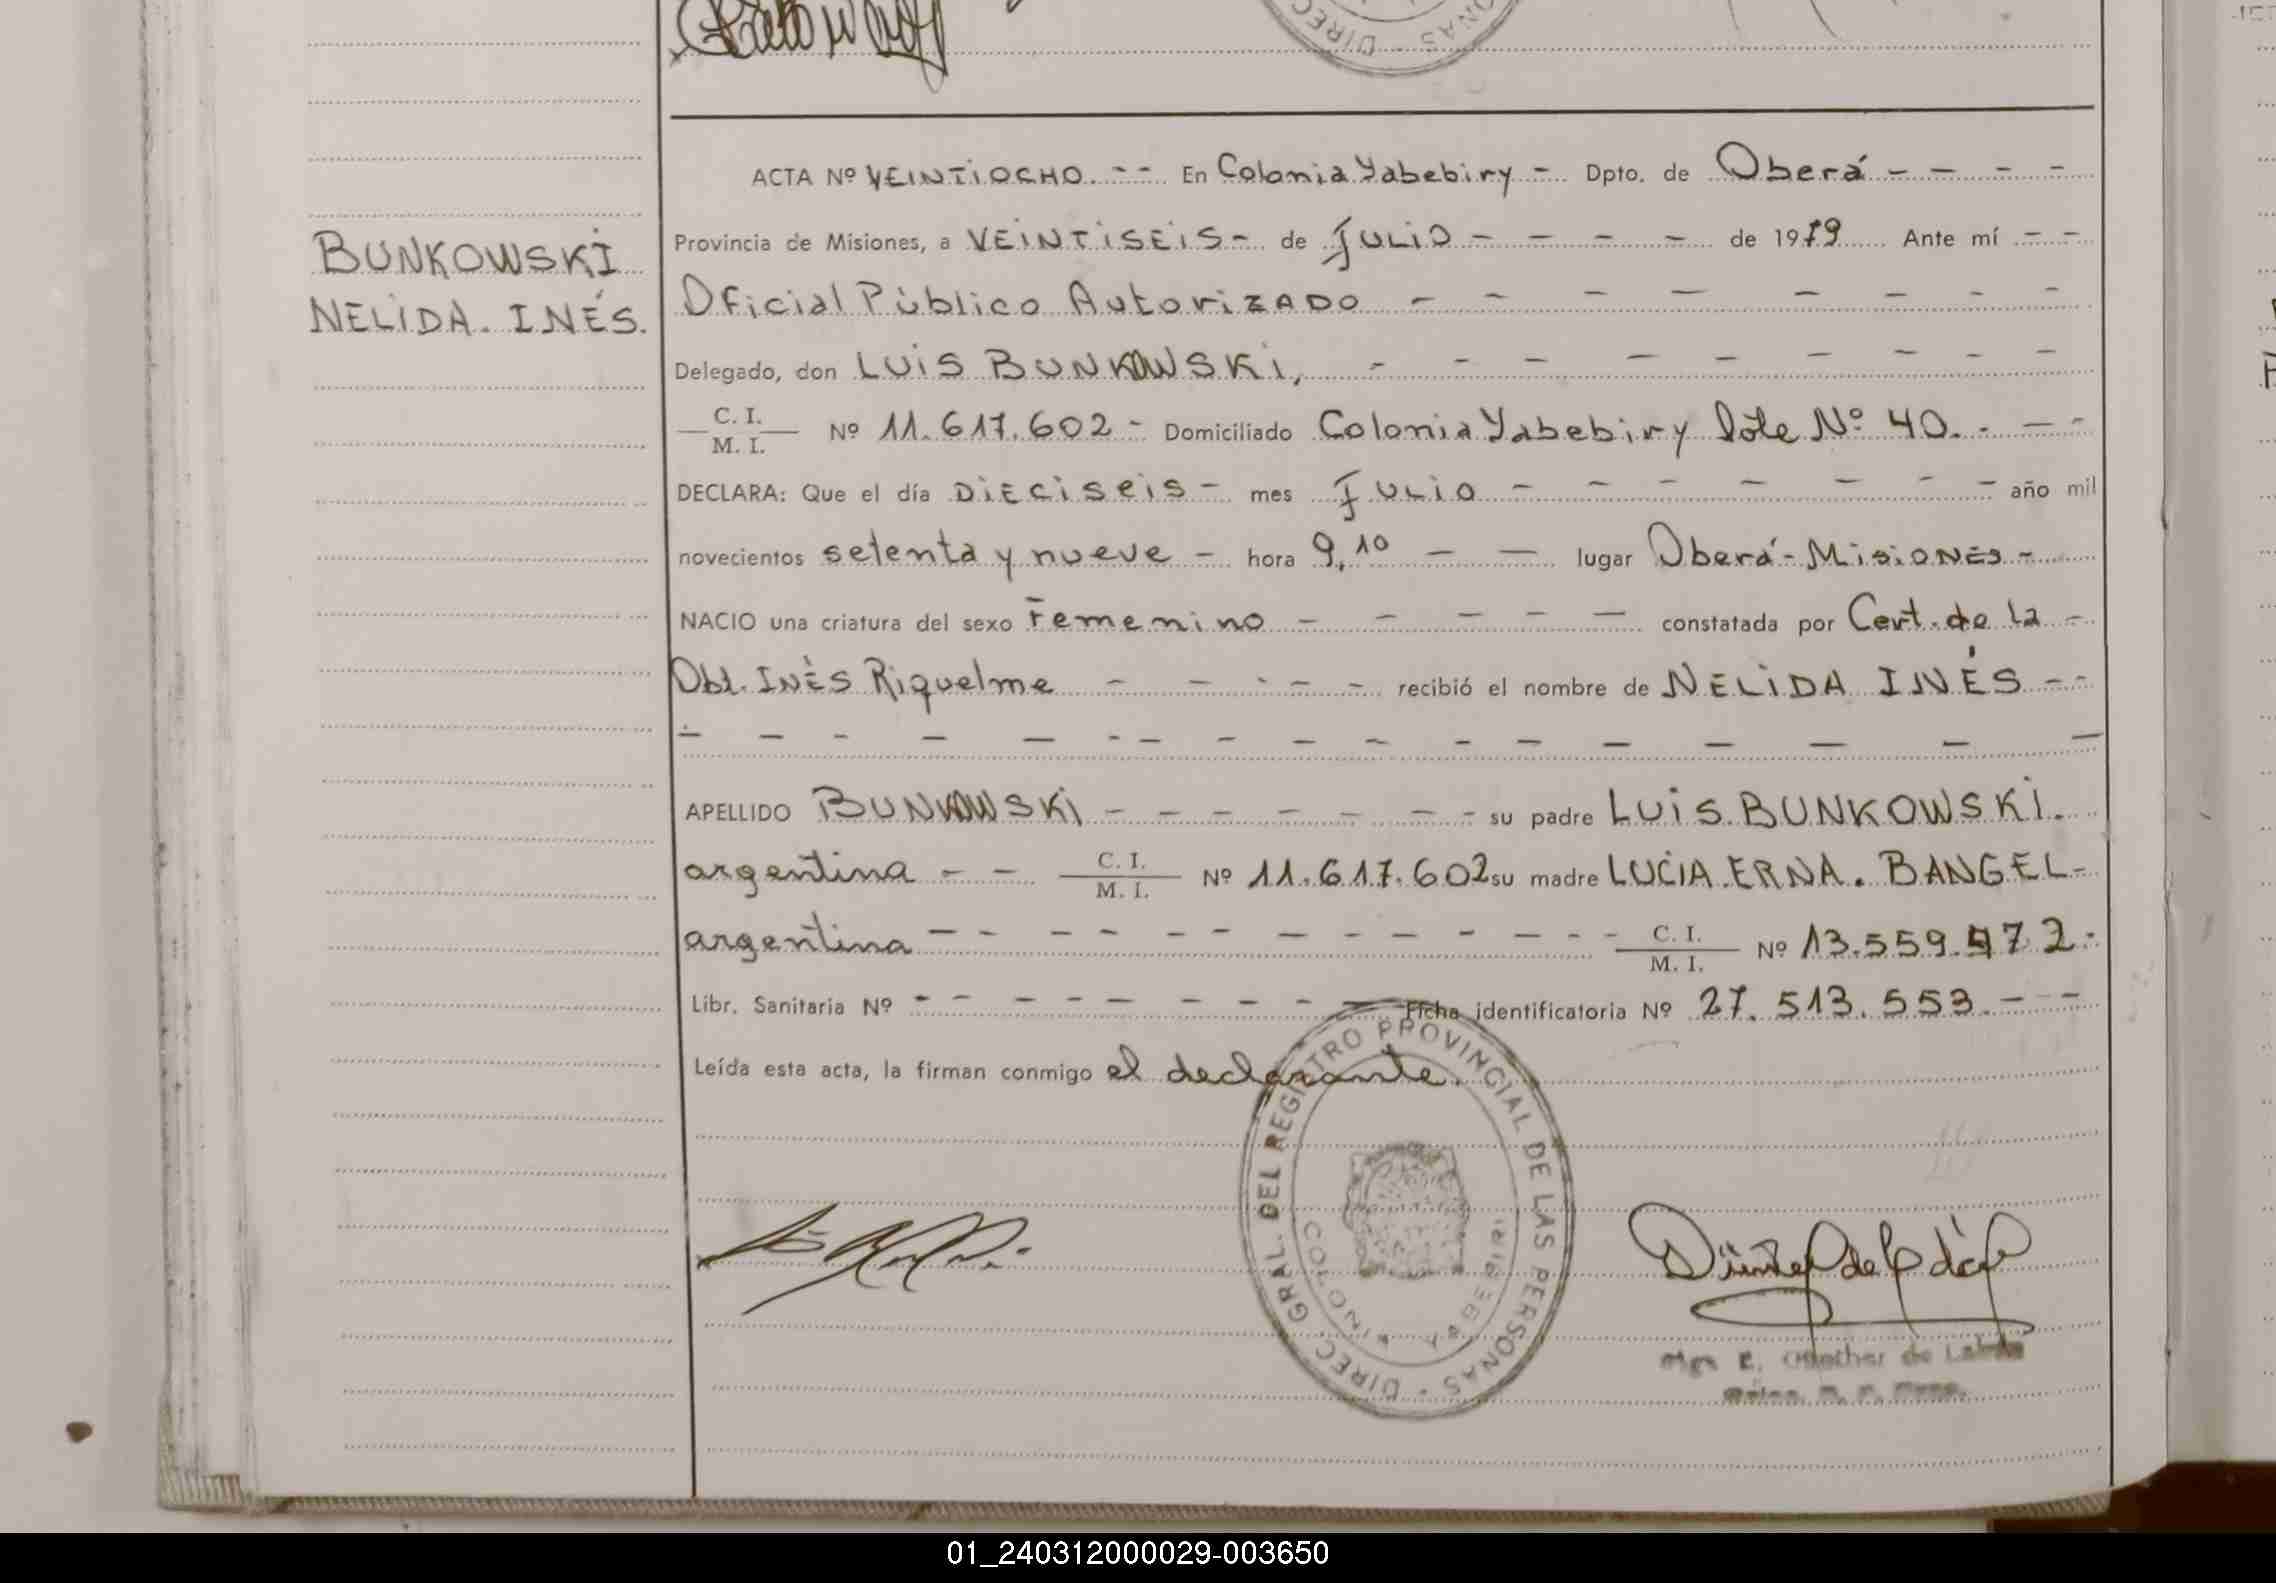 DIREC ONAS
ACTA Nº VEINTIOCHO. -- En Colonia Yabebiry - Dpto. de Oberá - - - -
BUNKOWSKI
NELIDA. INÉS.
Provincia de Misiones, a VEINTISEIS - de JULIO - - - - de 1979 Ante mí - -
Oficial Público Autorizado - - - - - - - -
Delegado, don LUIS BUNKOWSKI, - - - - - - - - -
C. I.
M. I. Nº 11.617.602 - Domiciliado Colonia Yabebiry lote Nº 40. - - -
DECLARA: Que el día Dieciseis - mes JULIO - - - - - - - año mil
novecientos setenta y nueve - hora 9,10 - - lugar Oberá - Misiones -
NACIO una criatura del sexo Femenino - - - - - constatada por Cert. de la -
Obt. INÉS Riquelme - - - - - recibió el nombre de NELIDA INÉS - -
- - - - - - - - - - - - - - - - - -
APELLIDO BUNKOWSKI - - - - - - - su padre LUIS BUNKOWSKI.
argentina - - C. I.
M. I. Nº 11.617.602 su madre LUCIA ERNA. BANGEL -
argentina - - - - - - - - - - - - C. I.
M. I. Nº 13.559.972 -
Libr. Sanitaria Nº - - - - - - - - - Ficha identificatoria Nº 27.513.553. - - -
Leída esta acta, la firman conmigo el declarante.
DIREC. GRAL. DEL REGISTRO PROVINCIAL DE LAS PERSONAS
YABEBIRI
E. de
01_240312000029-003650